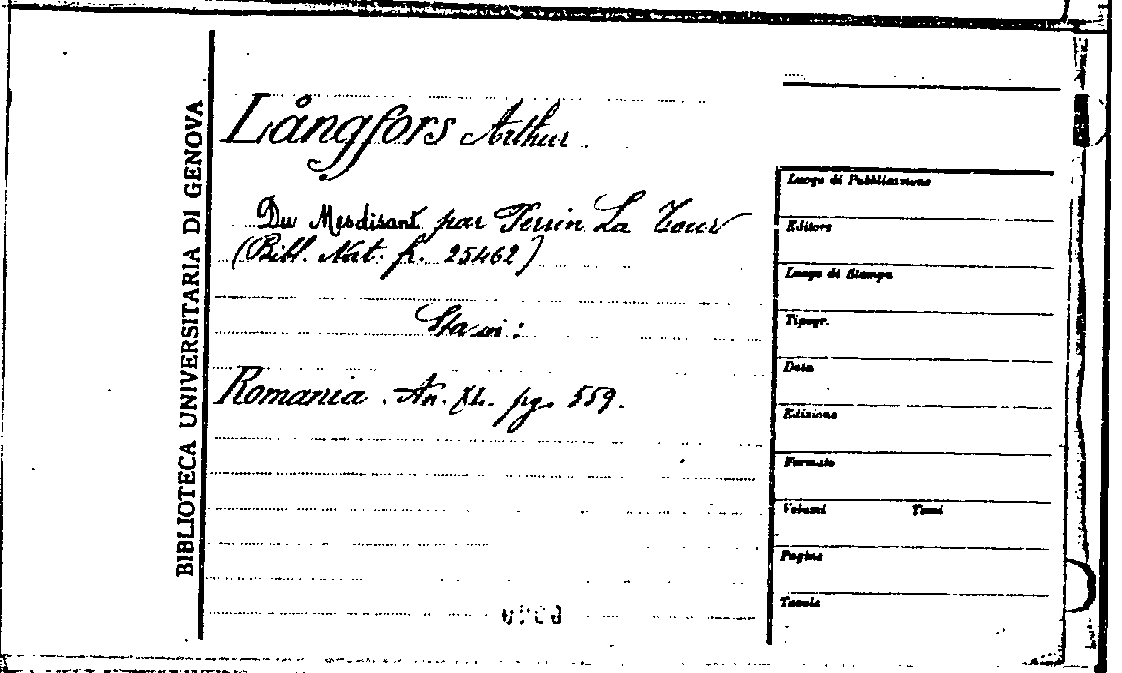 BIBLIOTECA UNIVERSITARIA DI GENOVA
Långfors Arthur
Du Mesdisant par Perrin La Tour
(Bibl. Nat. fr. 25462)
Sta in:
Romania. An. XL. pg. 559.
Luogo di Pubblicazione
Editore
Luogo di Stampa
Tipogr.
Data
Edizione
Formato
Volumi Tomi
Pagine
Tavole